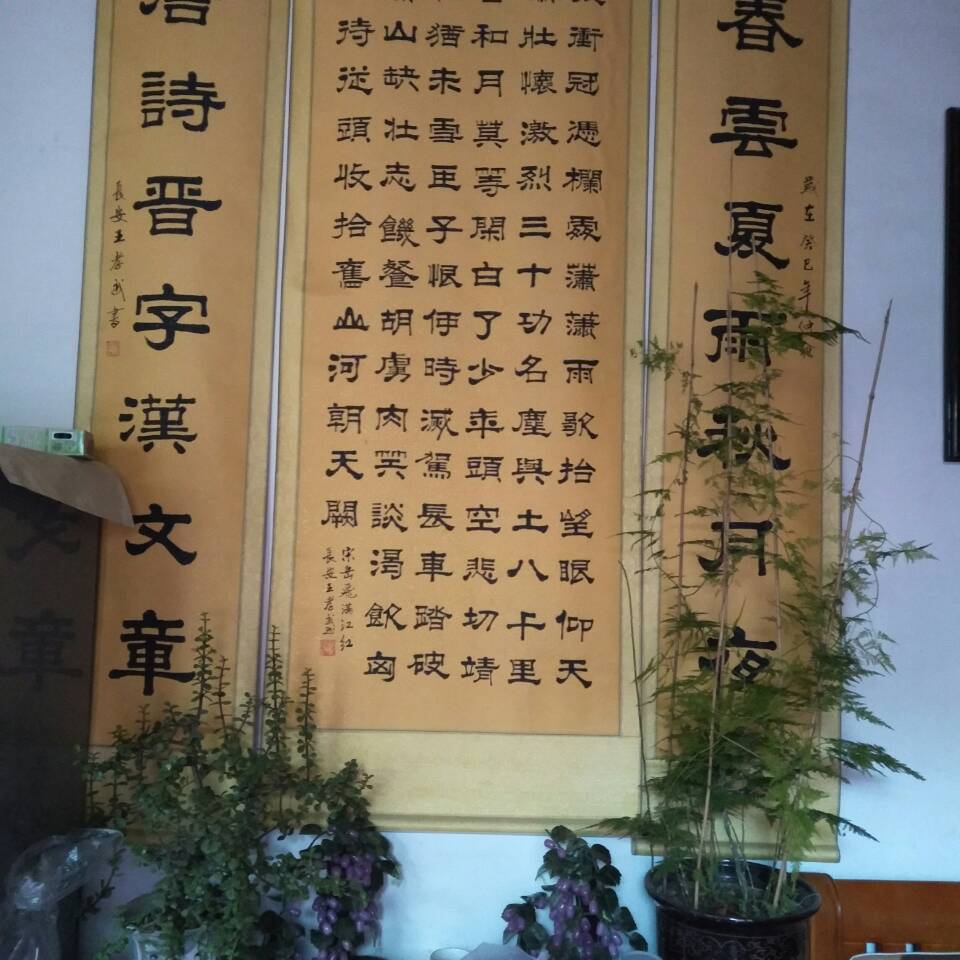 春雲夏雨秋月夜
歲在癸巳年仲
衝冠憑欄處瀟瀟雨歇抬望眼仰天
壯懷激烈三十功名塵與土八千里
和月莫等閑白了少年頭空悲切靖
猶未雪臣子恨何時滅駕長車踏破
山缺壯志饑餐胡虜肉笑談渴飲匈
待從頭收拾舊山河朝天闕
宋岳飛滿江紅
長安王孝武書
唐詩晉字漢文章
長安王孝武書